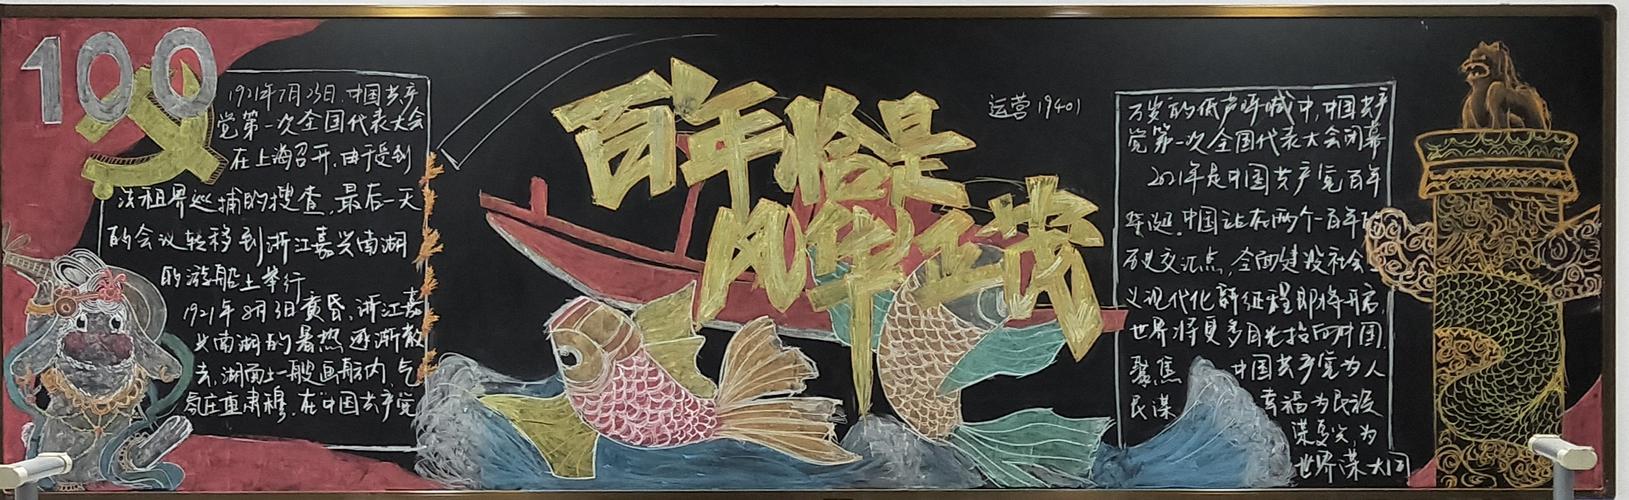 100
1921年7月23日,中国共产
党第一次全国代表大会
在上海召开,由于受到
法租界巡捕的搜查,最后一天
的会议转移到浙江嘉兴南湖
的游船上举行
1921年8月3日黄昏,浙江嘉
兴南湖的暑热逐渐散
去,湖面上一艘画舫内,气
氛庄重肃穆,在中国共产党
百年恰是
风华正茂
运营19401
万岁的低声呼喊中,中国共产
党第一次全国代表大会闭幕
2021年是中国共产党百年
华诞.中国站在两个一百年的
历史交汇点,全面建设社会
义现代化新征程即将开启,
世界将更多目光投向中国.
聚焦 中国共产党为人
民谋 幸福为民族
谋复兴,为
世界谋大同